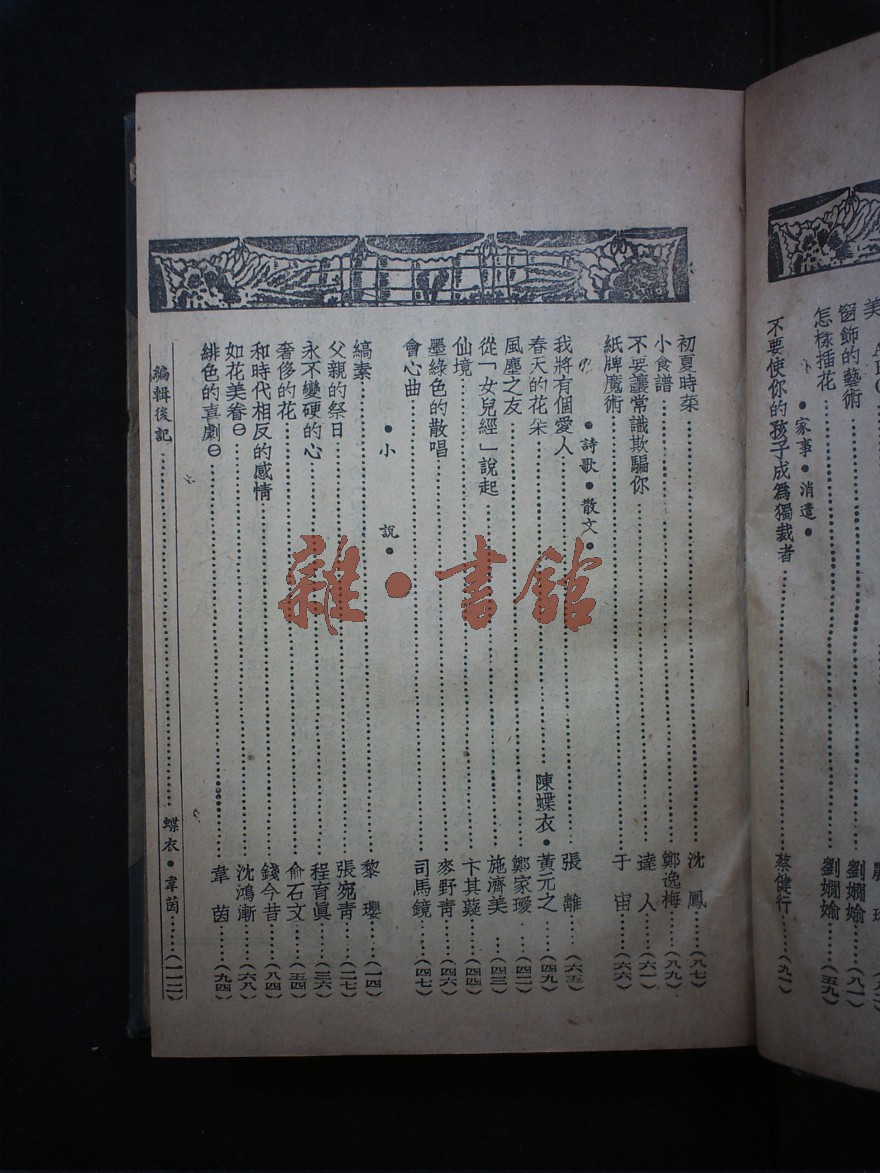 窗飾的藝術……劉嫺婾……(八一)
怎樣插花……劉嫺婾……(五九)
●家事●消遣●
不要使你的孩子成爲獨裁者……蔡健行……(九一)
初夏時菜……沈鳳……(八七)
小食譜……鄭逸梅……(八九)
不要讓常識欺騙你……達人……(六一)
紙牌魔術……于宙……(六六)
●詩歌●散文●
我將有個愛人……張離……(六五)
春天的花朵……陳蝶衣●黃元之……(四九)
風塵之友……鄭家瑷……(四二)
從「女兒經」說起……施濟美……(四三)
仙境……卞其薿……(四四)
墨綠色的散唱……麥野靑……(四六)
會心曲……司馬鏡……(四七)
●小說●
縞素……黎瓔……(一四)
父親的祭日……張宛靑……(二七)
永不變硬的心……程育眞……(三六)
奢侈的花……俞石文……(五四)
和時代相反的感情……錢今昔……(八四)
如花美眷㊀……沈鴻漸……(六八)
緋色的喜劇㊀……韋茵……(九四)
編輯後記……蝶衣●韋茵……(一一二)
雜·書館